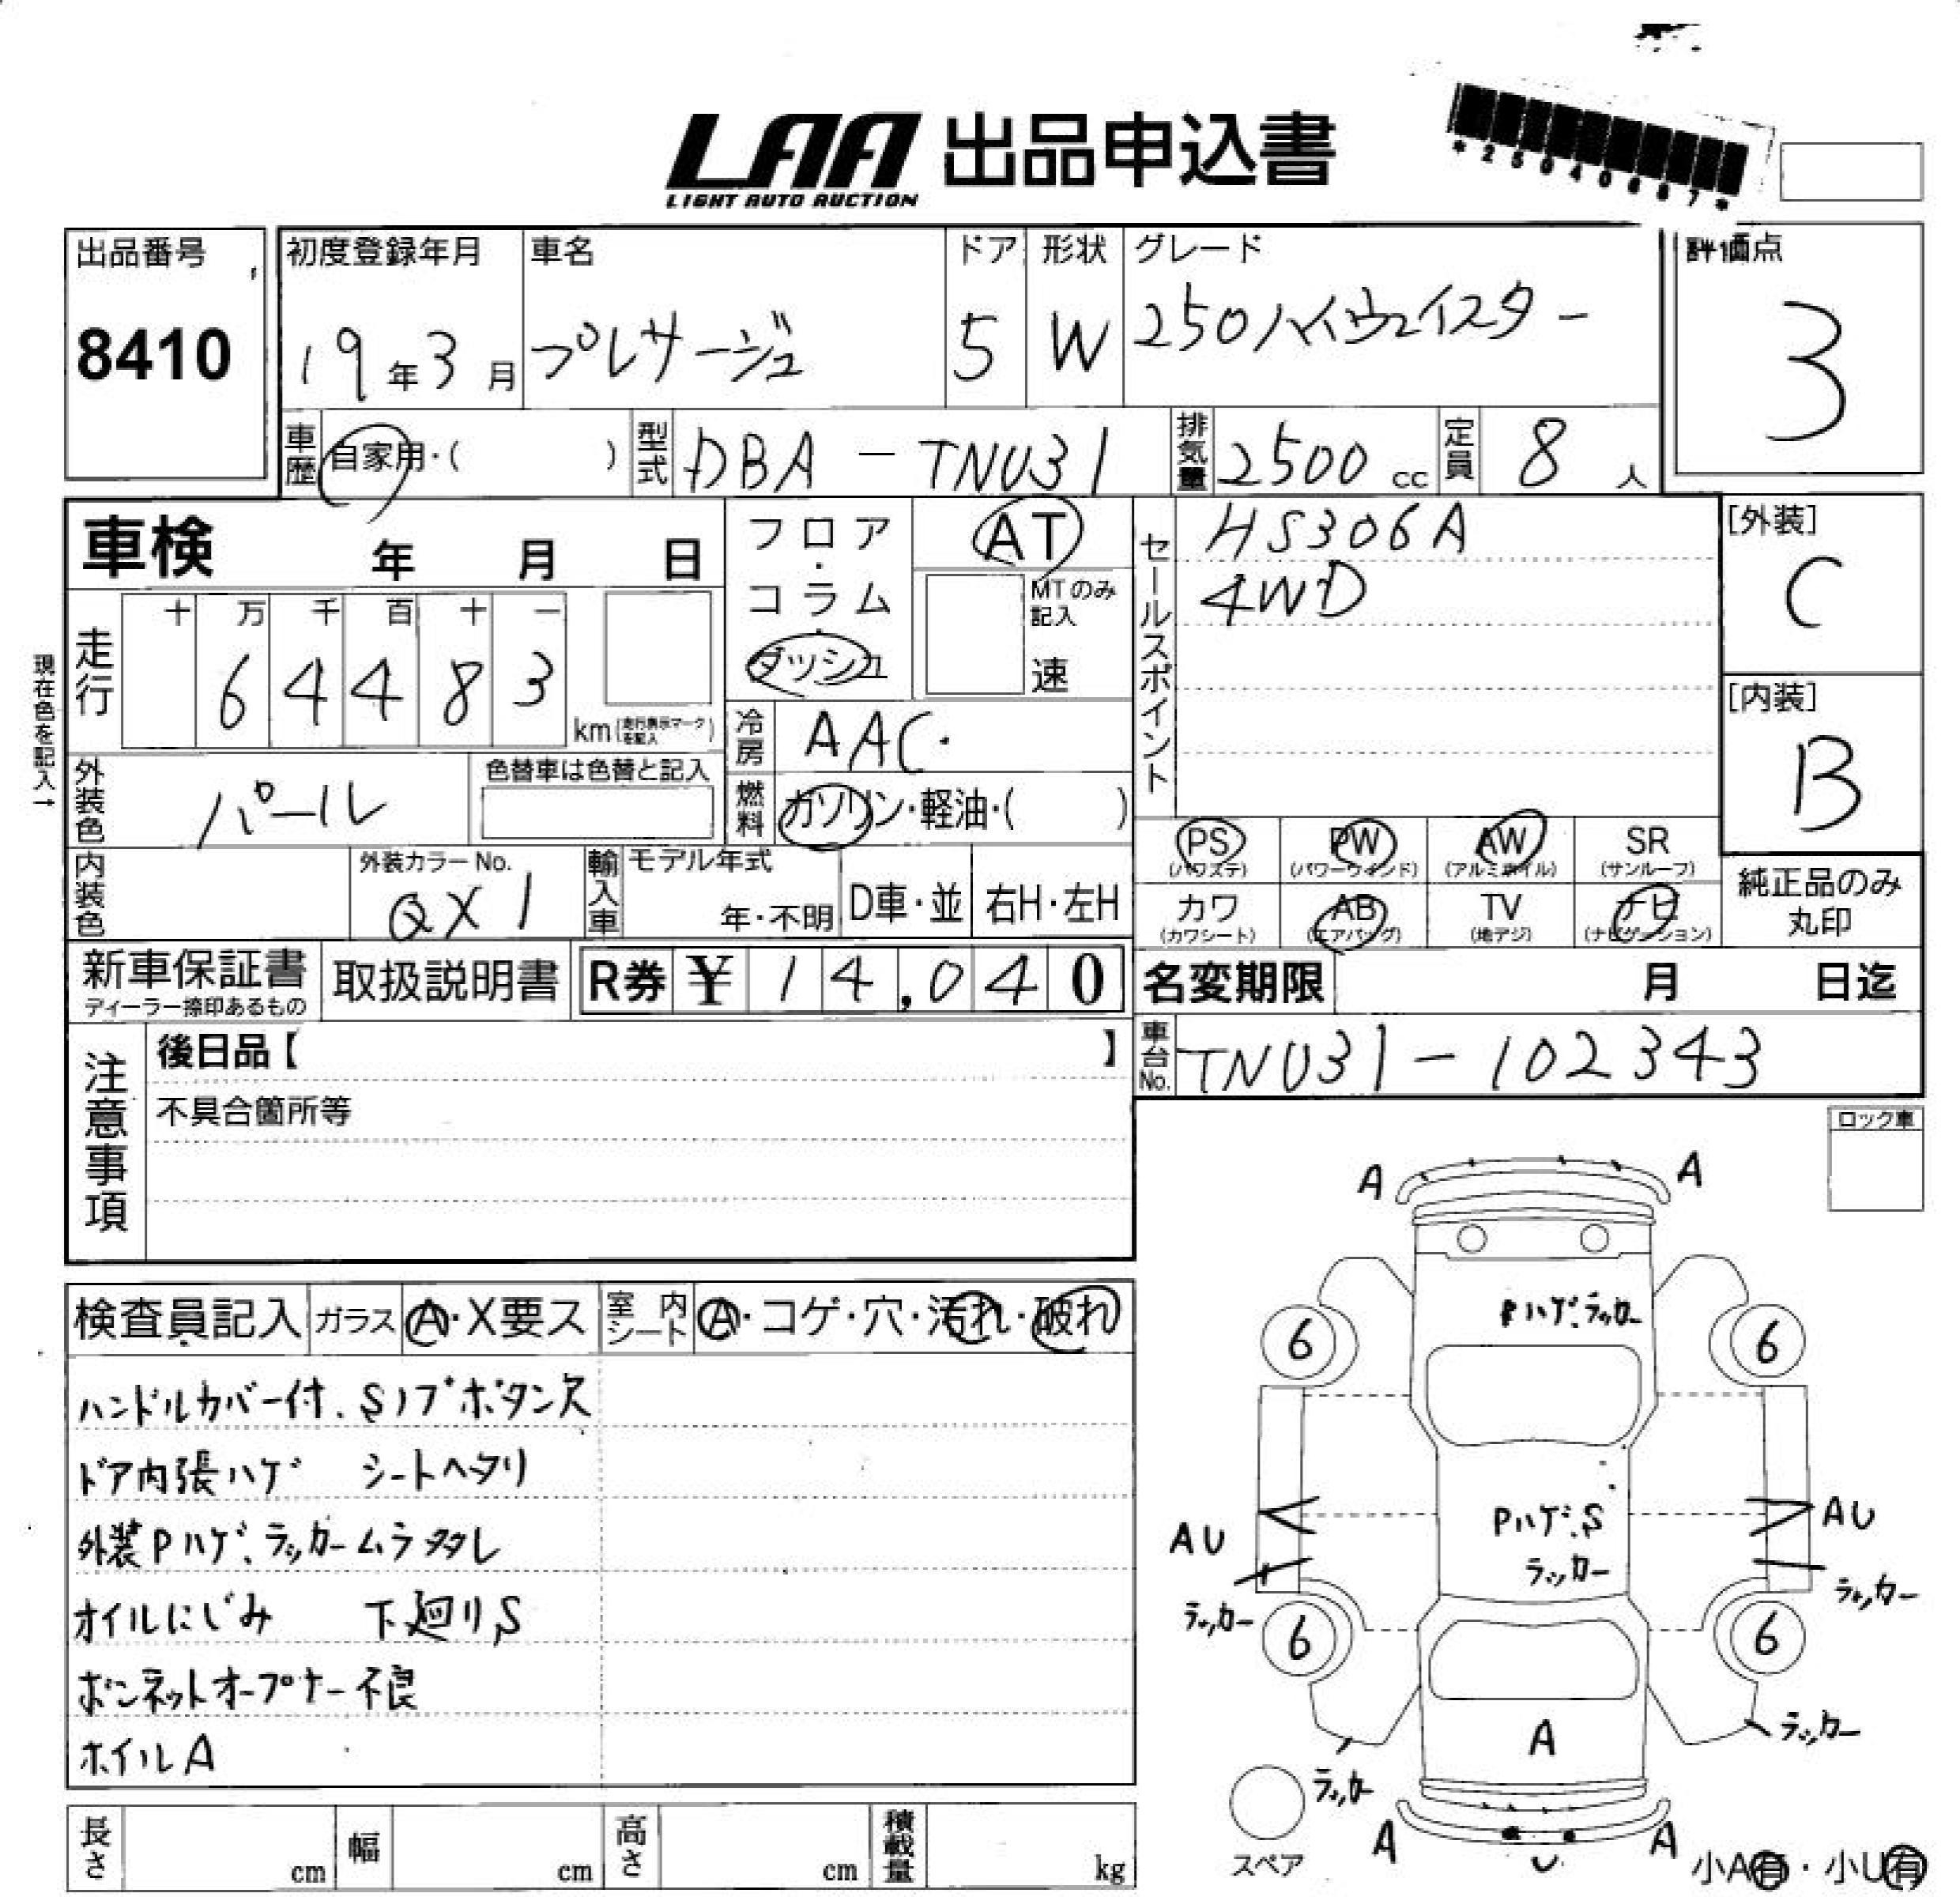 LAA 出品申込書
LIGHT AUTO AUCTION
出品番号
8410
初度登録年月
19年3月
車名
プレサージュ
ドア
5
形状
W
グレード
250ハイウェイスター
評価点
3
車歴
自家用・( )
型式
DBA-TNU31
排気量
2500 cc
定員
8 人
車検 年 月 日
フロア・コラム・ダッシュ
AT
MTのみ記入
速
セールスポイント
HS306A
4WD
[外装]
C
[内装]
B
現在色を記入→
走行
十 万 千 百 十 一
6 4 4 8 3
km(走行表示マークを記入)
冷房
AAC.
燃料
ガソリン・軽油・( )
外装色
パール
色替車は色替と記入
内装色
外装カラーNo.
QX1
輸入車
モデル年式
年・不明
D車・並
右H・左H
PS (パワステ)
PW (パワーウインド)
AW (アルミホイル)
SR (サンルーフ)
カワ (カワシート)
AB (エアバッグ)
TV (地デジ)
ナビ (ナビゲーション)
純正品のみ
丸印
新車保証書
ディーラー捺印あるもの
取扱説明書
R券 ¥ 14,040
名変期限 月 日迄
車台No.
TNU31-102343
注意事項
後日品【 】
不具合箇所等
ロック車
検査員記入
ガラス A・X要ス
室内シート A・コゲ・穴・汚れ・破れ
ハンドルカバー付、Sノブボタン欠
ドア内張ハゲ シートヘタリ
外装Pハゲ、ラッカームラタレ
オイルにじみ 下廻りS
ボンネットオープナー不良
ホイルA
A A
Pハゲ、ラッカー
6 6
AU AU
Pハゲ、S
ラッカー
ラッカー ラッカー
6 6
ラッカー ラッカー
A
A A
U
スペア
小A有・小U有
長さ cm
幅 cm
高さ cm
積載量 kg